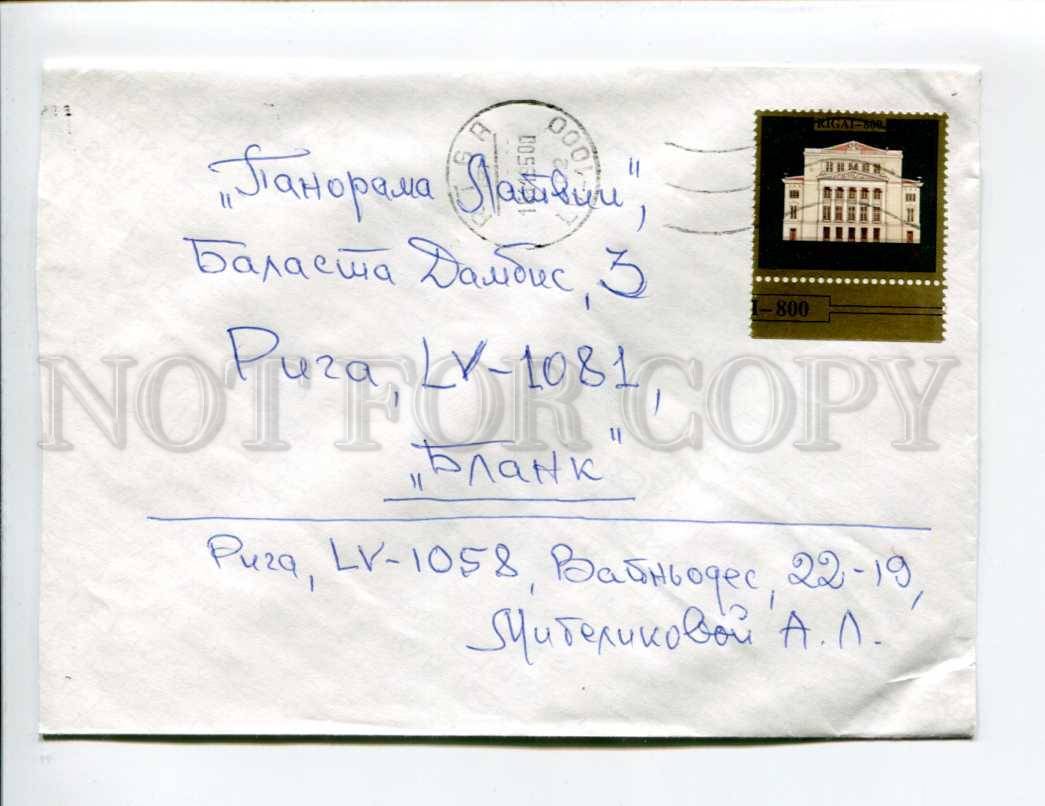 RIGAI-800
RIGA
LV-1000
I-800
„Панорама Латвии",
Баласта Дамбис, 3
Рига, LV-1081,
„Бланк"
Рига, LV-1058, Вайньодес, 22-19,
Мителиковой А. Л.
NOT FOR COPY